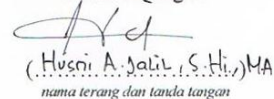 (Husni A. Jalil, S.Hi.,) MA
nama terang dan tanda tangan